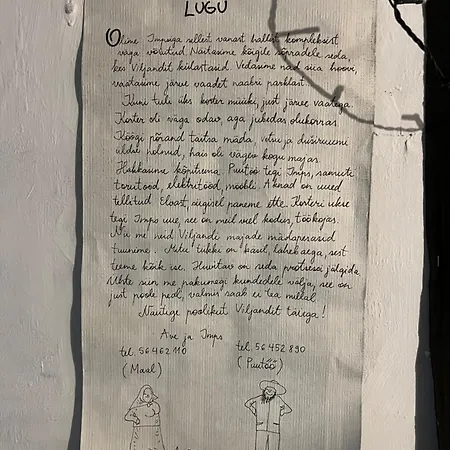 LUGU
Olime Impsiga sellest vanast hallist kompleksist
väga võlutud. Näitasime kõigile sõpradele seda,
kes Viljandit külastasid. Vedasime nad siia hoovi,
vaatasime järve vaadet naabri parklast.
Kuni tuli üks korter müüki, just järve vaatega.
Korter oli väga odav, aga jubedas olukorras.
Köögi põrand täitsa mäda, vetsu ja duširuumi
üldse polnud, hais oli vägev kogu majas.
Hakkasime kõpitsema. Puutöö tegi Imps, samuti
torutööd, elektritööd, mööbli. Aknad on uued
tellitud. Eloast, sügisel paneme ette. Korteri ukse
tegi Imps uue, see on meil veel kodus, töökojas.
Nü me nüd Viljandi majade mädaperasid
tuunime. Mitu tükki on käsil, läheb aega, sest
teeme kõik ise. Huvitav on seda protsessi jälgida.
Ühte siin me pakumegi kundedele välja, see on
just poole peal, valmis saab ei tea millal.
Nautige poolikut Viljandit täiega!
Ave ja Imps
tel. 56 462 110
tel. 56 452 890
(Maal)
(Puutöö)